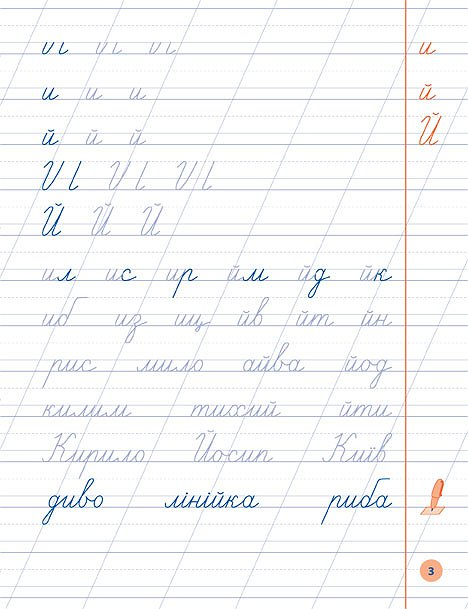 и
и и и
й
й й й
Й
Й Й Й
ил ис ир йм йд йк
иб из ищ йв йт йн
рис мило айва йод
килим тихий йти
Кирило Йосип Київ
диво лінійка риба
3